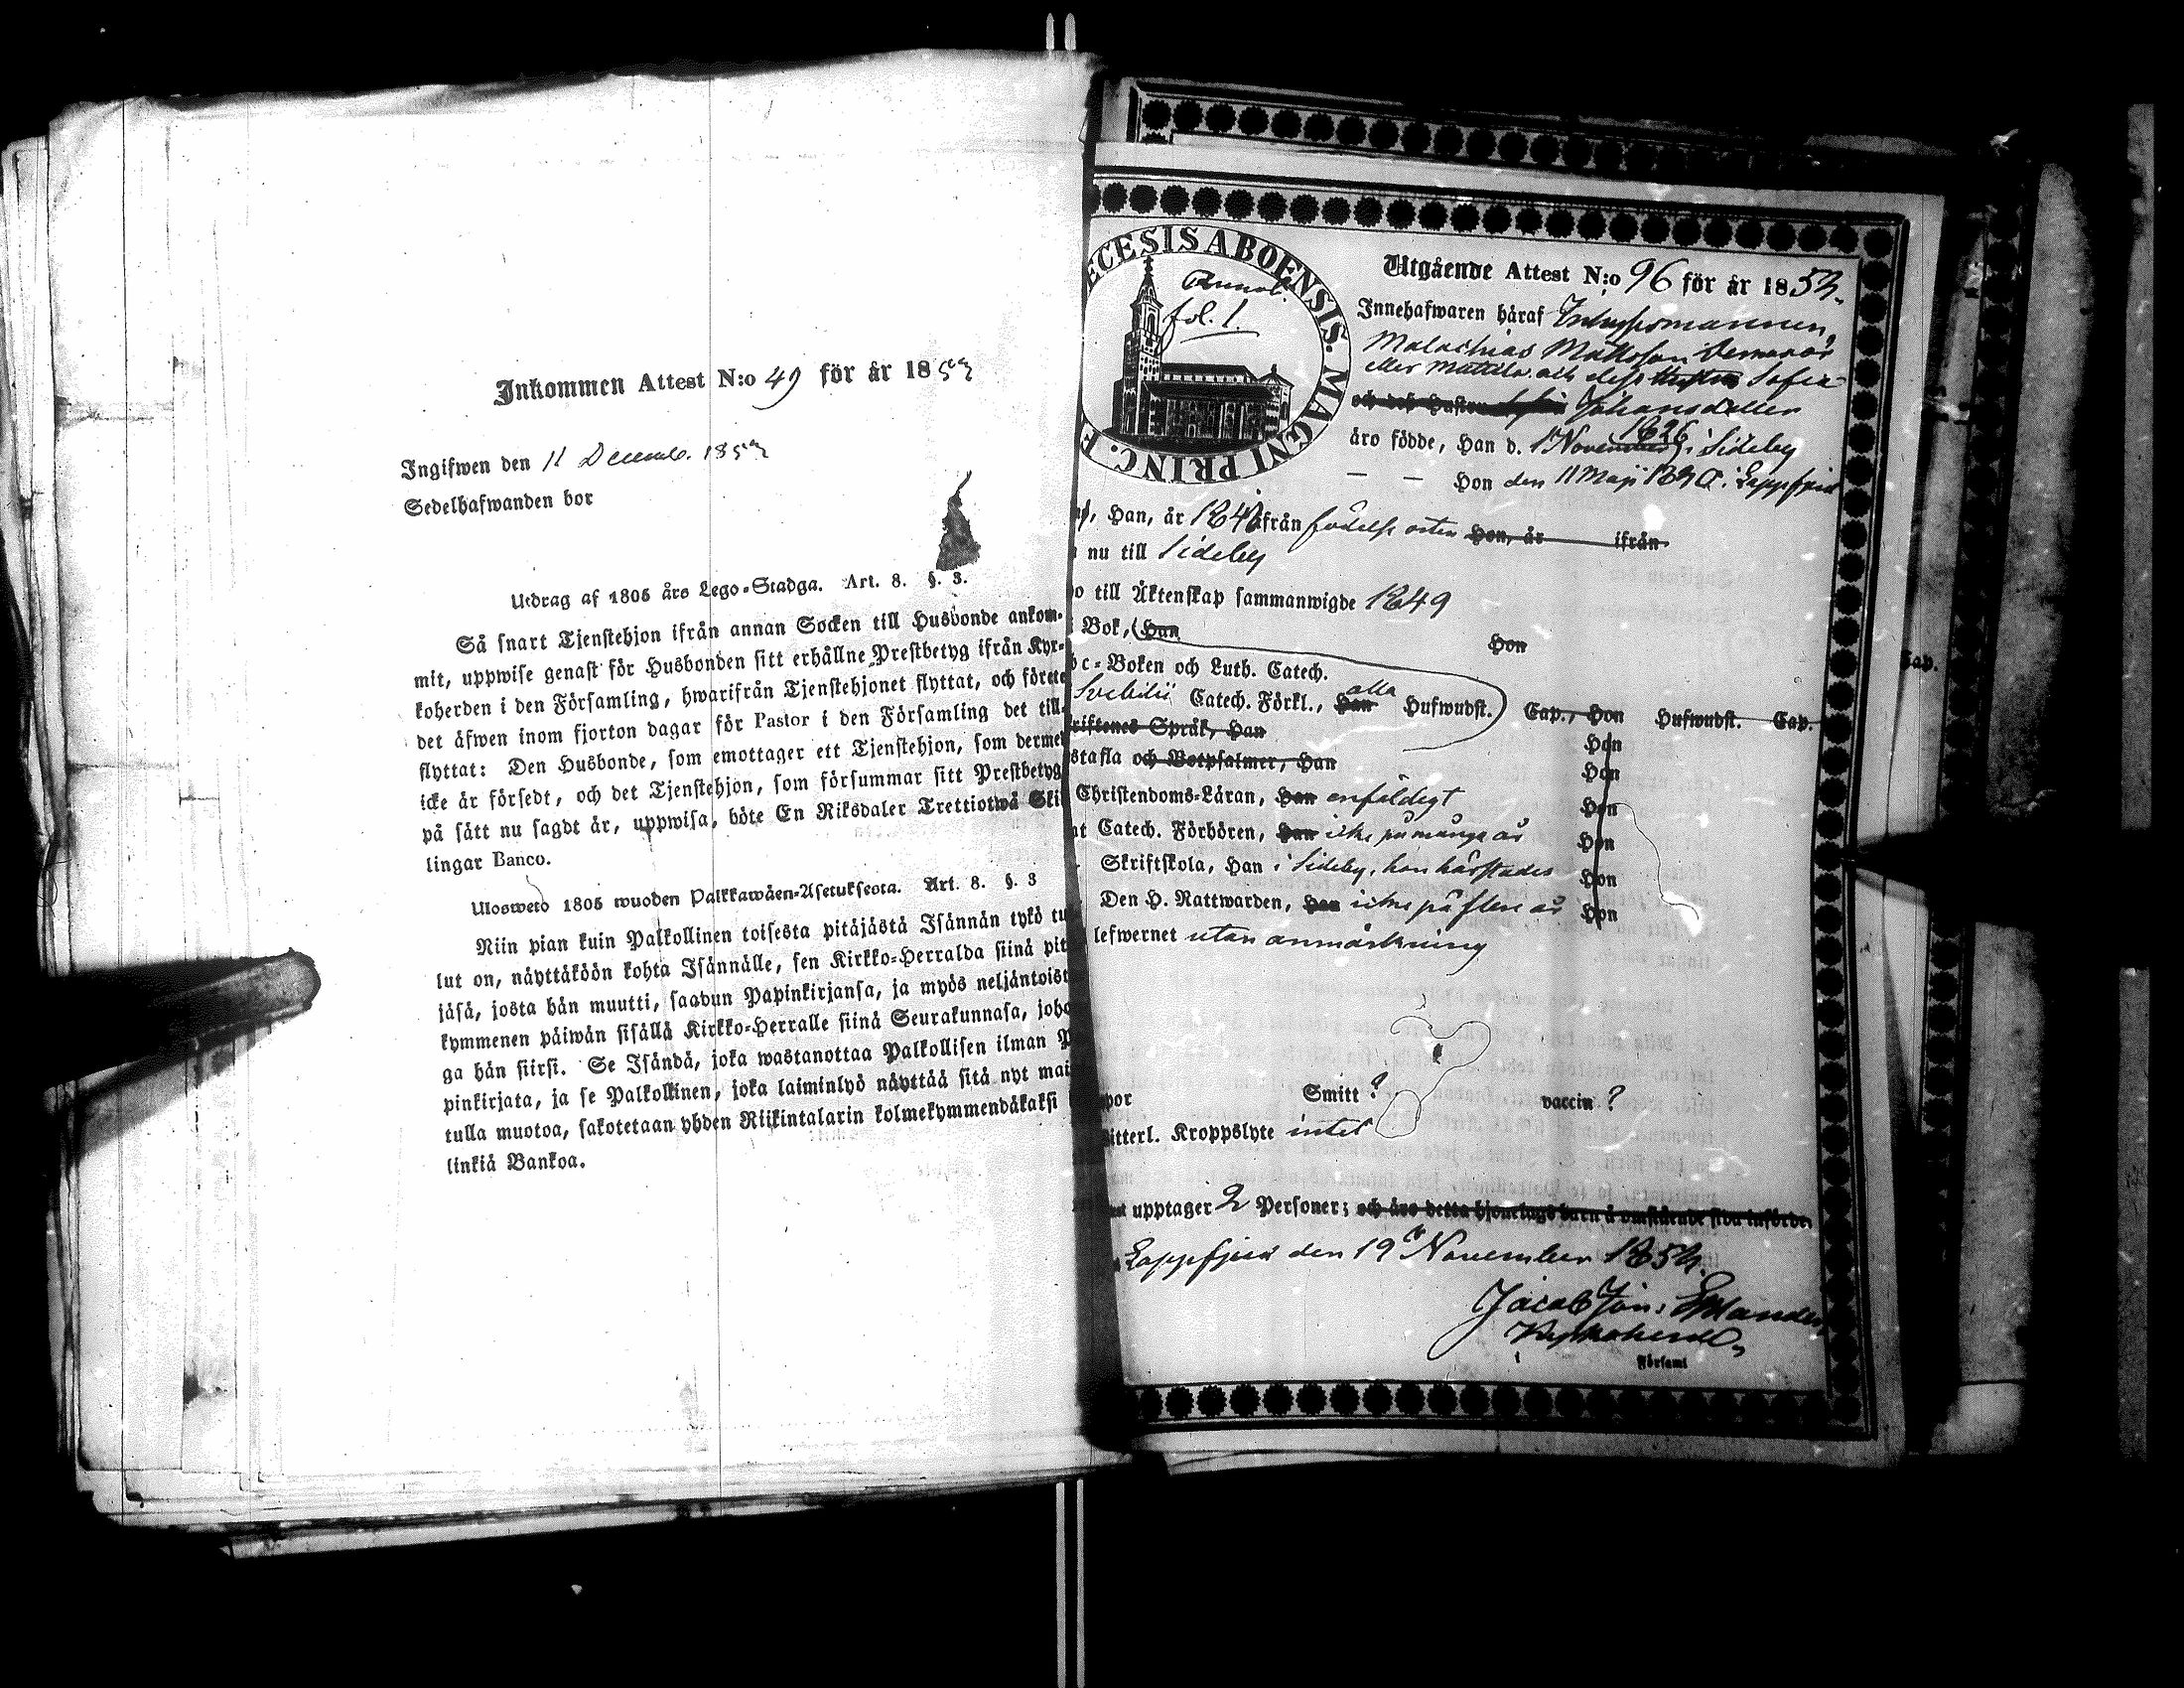 Inkommen Attest N:o 49 för år 1853
Ingifwen den 11 Decemb. 1853
Sedelhafwanden bor
Utdrag af 1805 års Lego-Stadga. Art. 8. §. 3.
Så snart Tjenstehjon ifrån annan Socken till Husbonde ankom-
mit, uppwise genast för Husbonden sitt erhållne Prestbetyg ifrån Kyr-
koherden i den Församling, hwarifrån Tjenstehjonet flyttat, och förete
det äfwen inom fjorton dagar för Pastor i den Församling det till-
flyttat: Den Husbonde, som emottager ett Tjenstehjon, som dermed
icke är försedt, och det Tjenstehjon, som försummar sitt Prestbetyg
på sätt nu sagdt är, uppwisa, böte En Riksdaler Trettiotwå Skil
lingar Banco.
Ulosweto 1805 wuoden Palkkawäen-Asetuksesta. Art. 8. §. 3
Niin pian kuin Palkollinen toisesta pitäjästä Isännän tykö tu
lut on, näyttäköön kohta Isännälle, sen Kirkko-Herralda siinä pit
jäsä, josta hän muutti, saadun Papinkirjansa, ja myös neljäntoist
kymmenen päiwän sisällä Kirkko-Herralle siinä Seurakunnasa, joho
ga hän siirsi. Se Isändä, joka wastanottaa Palkollisen ilman P
pinkirjata, ja se Palkollinen, joka laiminlyö näyttää sitä nyt mai
tulla muotoa, sakotetaan yhden Riikintalarin kolmekymmendäkaksi
linkiä Bankoa.
ECESIS ABOENSIS. MAGNI PRINC. F
Annot.
fol. 1.
Utgående Attest N:o 96 för år 1853.
Innehafwaren häraf Inhysesmannen
Malachias Mattsson
eller Mattila och dess Hustru Sofia
och dess Hustru Johansdotter
äro födde, Han d. 1 November 1826 i Sideby
— — Hon den 11 Maji 1830 i Lappfjerd
Han, år 184 ifrån födelse orten Hon, år ifrån
nu till Sideby
till Äktenskap sammanwigde 1849
Bok, Han Hon
bc-Boken och Luth. Catech.
Svebilii Catech. Förkl., Han alla Hufwudst. Cap., Hon Hufwudst. Cap.
riftenes Språk, Han Hon
stafla och Botpsalmer, Han Hon
Christendoms-Läran, Han enfaldigt Hon
Catech. Förhören, Han icke på många år Hon
Skriftskola, Han i Sideby, hon härstädes Hon
Den H. Nattwarden, Han icke på flere år Hon
lefwernet utan anmärkning
Smitt ? vaccin ?
itterl. Kroppslyte intet
upptager 2 Personer; och äro detta hjonelags barn å omstående sida införde.
Lappfjerd den 19 November 1853.
Jacob Joh:
Kyrkoherde
Församl